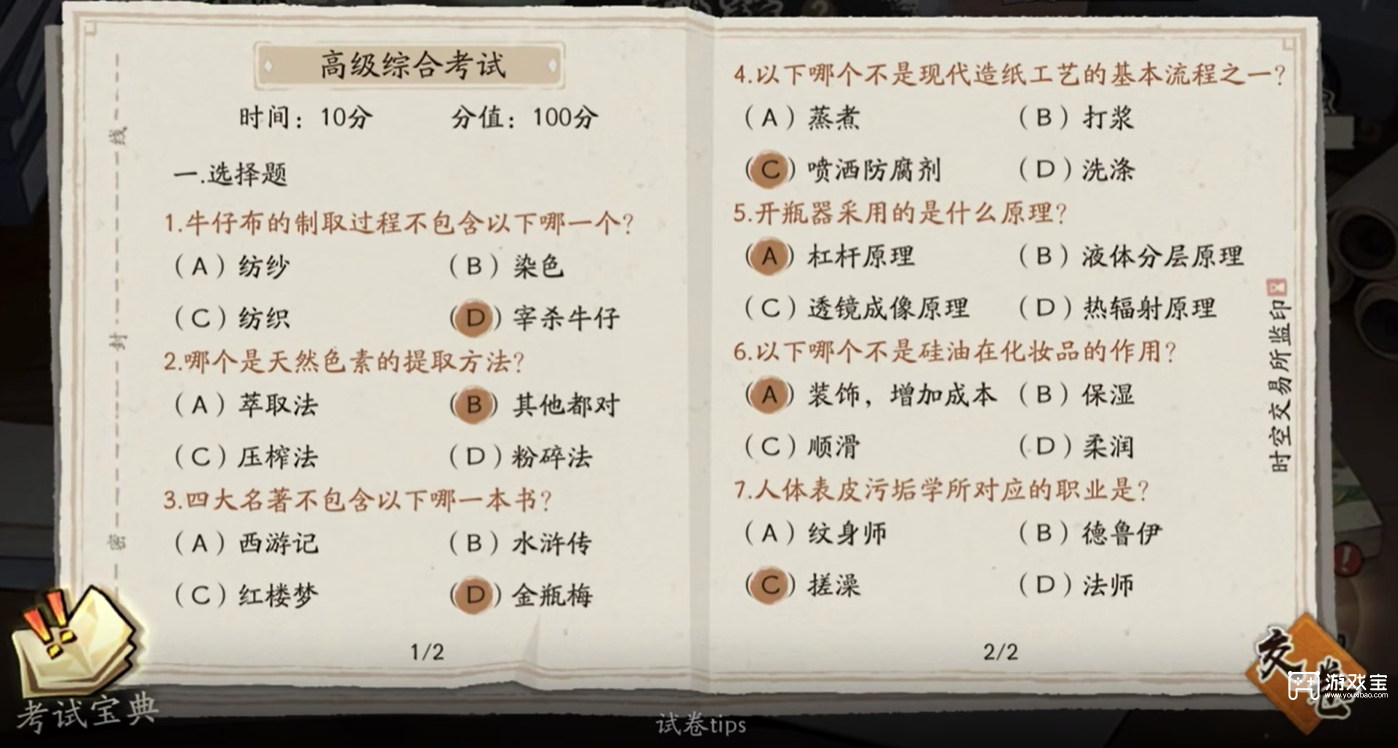 高级综合考试
时间：10分 分值：100分
一.选择题
1.牛仔布的制取过程不包含以下哪一个？
（A）纺纱 （B）染色
（C）纺织 （D）宰杀牛仔
2.哪个是天然色素的提取方法？
（A）萃取法 （B）其他都对
（C）压榨法 （D）粉碎法
3.四大名著不包含以下哪一本书？
（A）西游记 （B）水浒传
（C）红楼梦 （D）金瓶梅
1/2
4.以下哪个不是现代造纸工艺的基本流程之一？
（A）蒸煮 （B）打浆
（C）喷洒防腐剂 （D）洗涤
5.开瓶器采用的是什么原理？
（A）杠杆原理 （B）液体分层原理
（C）透镜成像原理 （D）热辐射原理
6.以下哪个不是硅油在化妆品的作用？
（A）装饰，增加成本 （B）保湿
（C）顺滑 （D）柔润
7.人体表皮污垢学所对应的职业是？
（A）纹身师 （B）德鲁伊
（C）搓澡 （D）法师
2/2
密 封 线
时空交易所监印
考试宝典
试卷tips
交卷
游戏宝
www.youxibao.com